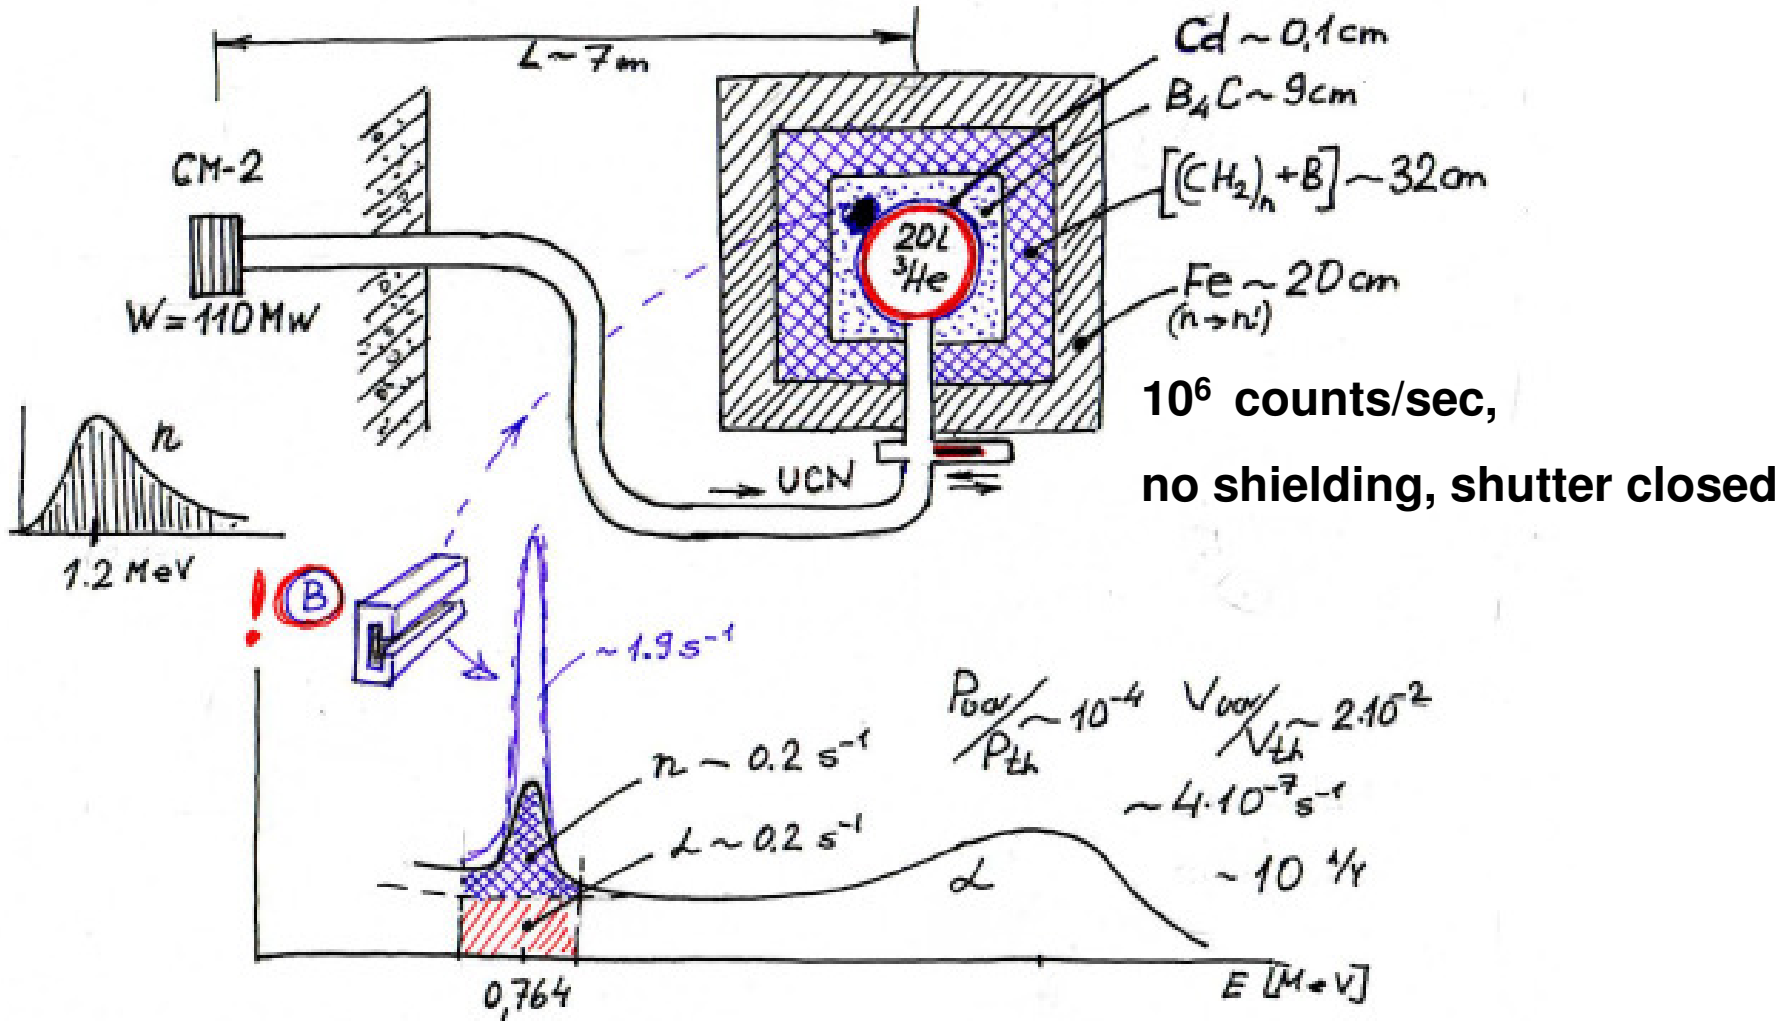 L ~ 7m
Cd ~ 0,1cm
B₄C ~ 9cm
[(CH₂)ₙ+B] ~ 32cm
Fe ~ 20cm
(n→n')
CM-2
W = 110 MW
20l
³He
UCN
10⁶ counts/sec,
no shielding, shutter closed
n
1.2 MeV
! B
~ 1.9 s⁻¹
n ~ 0.2 s⁻¹
α ~ 0.2 s⁻¹
Pucn/Pth ~ 10⁻⁴ Vucn/Vth ~ 2·10⁻²
~ 4·10⁻⁷ s⁻¹
~ 10 1/Y
α
0,764
E [MeV]